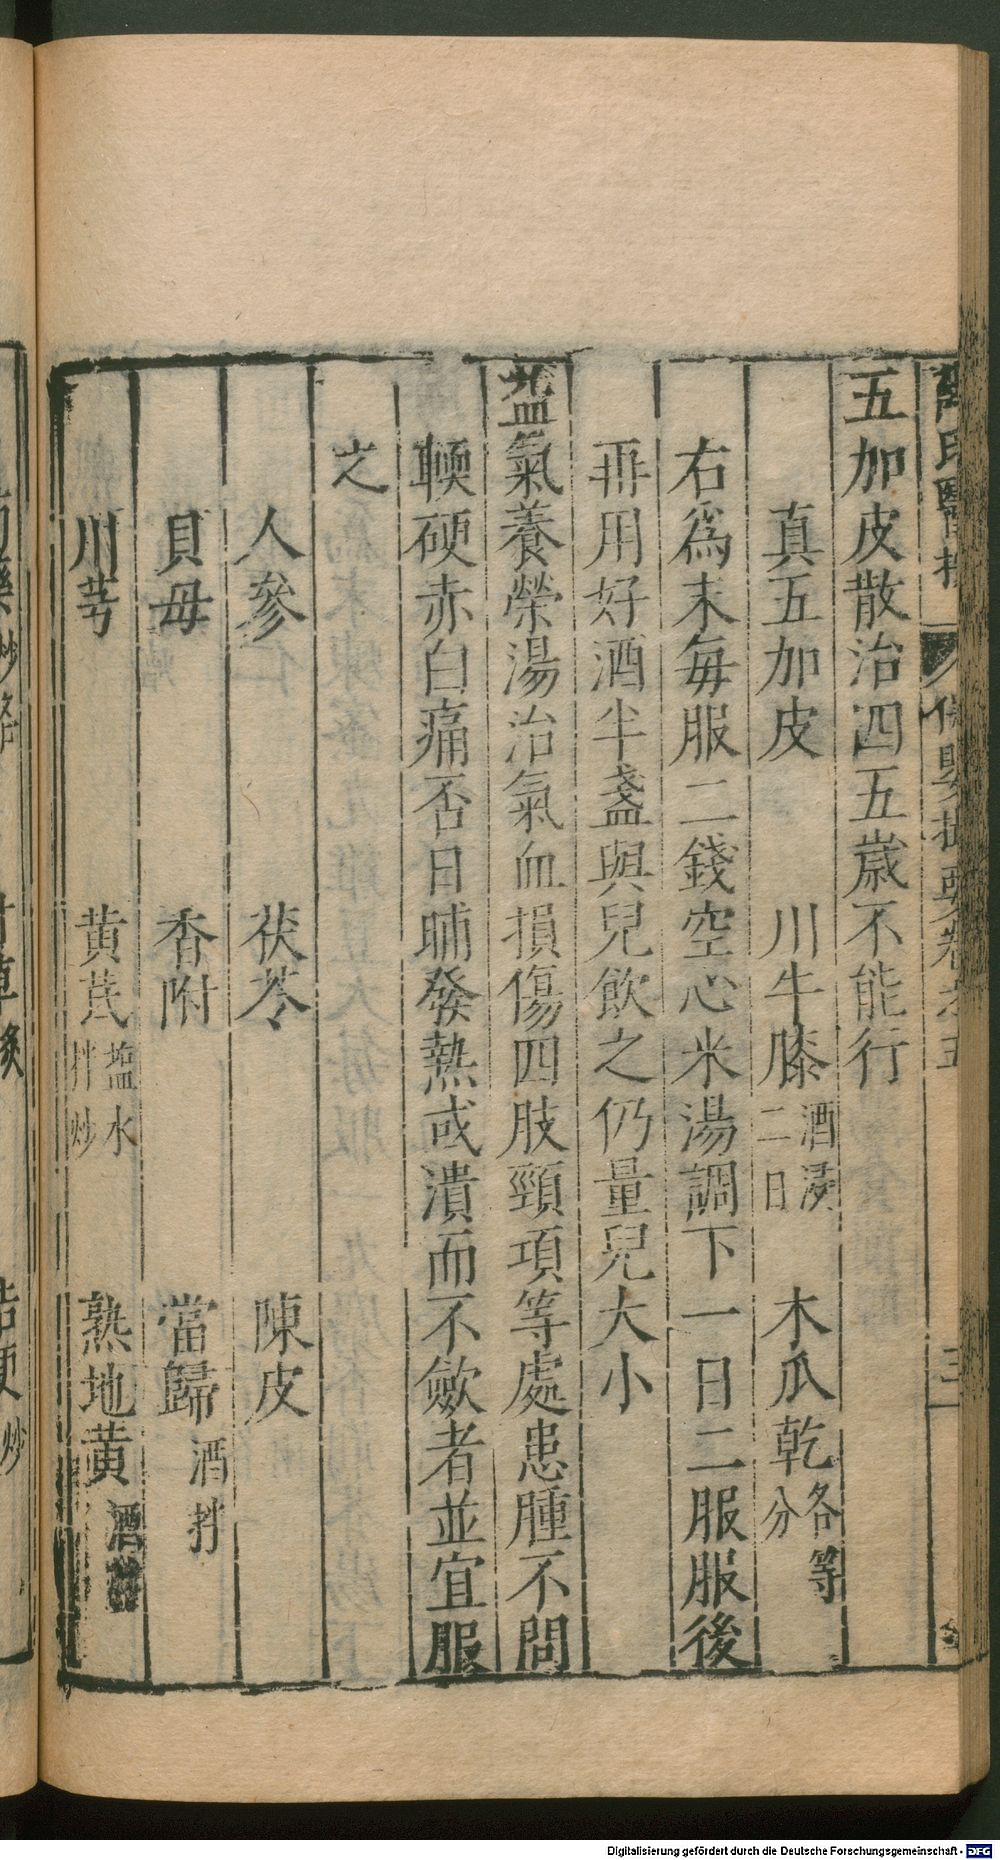 五加皮散治四五嵗不能行
真五加皮 川牛膝酒浸二日 木瓜乾各等分
右爲末每服二錢空心米湯調下一日二服服後
再用好酒半盞與兒飲之仍量兒大小
益氣養榮湯治氣血損傷四肢頸項等處患腫不問
輭硬赤白痛否日晡發熱或潰而不歛者並宜服
之
人參 茯苓 陳皮
貝母 香附 當歸酒拌
川芎 黄芪塩水拌炒 熟地黄酒
Digitalisierung gefördert durch die Deutsche Forschungsgemeinschaft - DFG